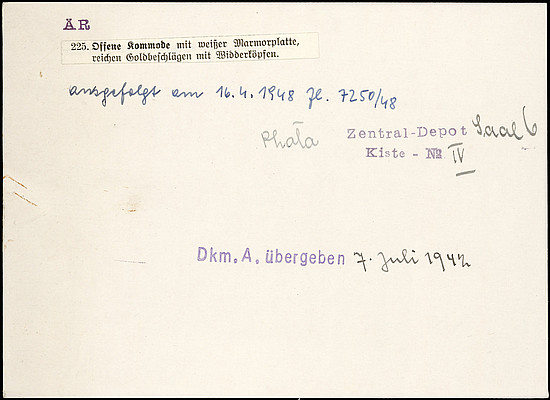 ÄR
225. Offene Kommode mit weißer Marmorplatte,
reichen Goldbeschlägen mit Widderköpfen.
ausgefolgt am 16.4.1948 Zl. 7250/48
Zentral-Depot Saal 6
Kiste - № IV
Dkm. A. übergeben 7. Juli 1942